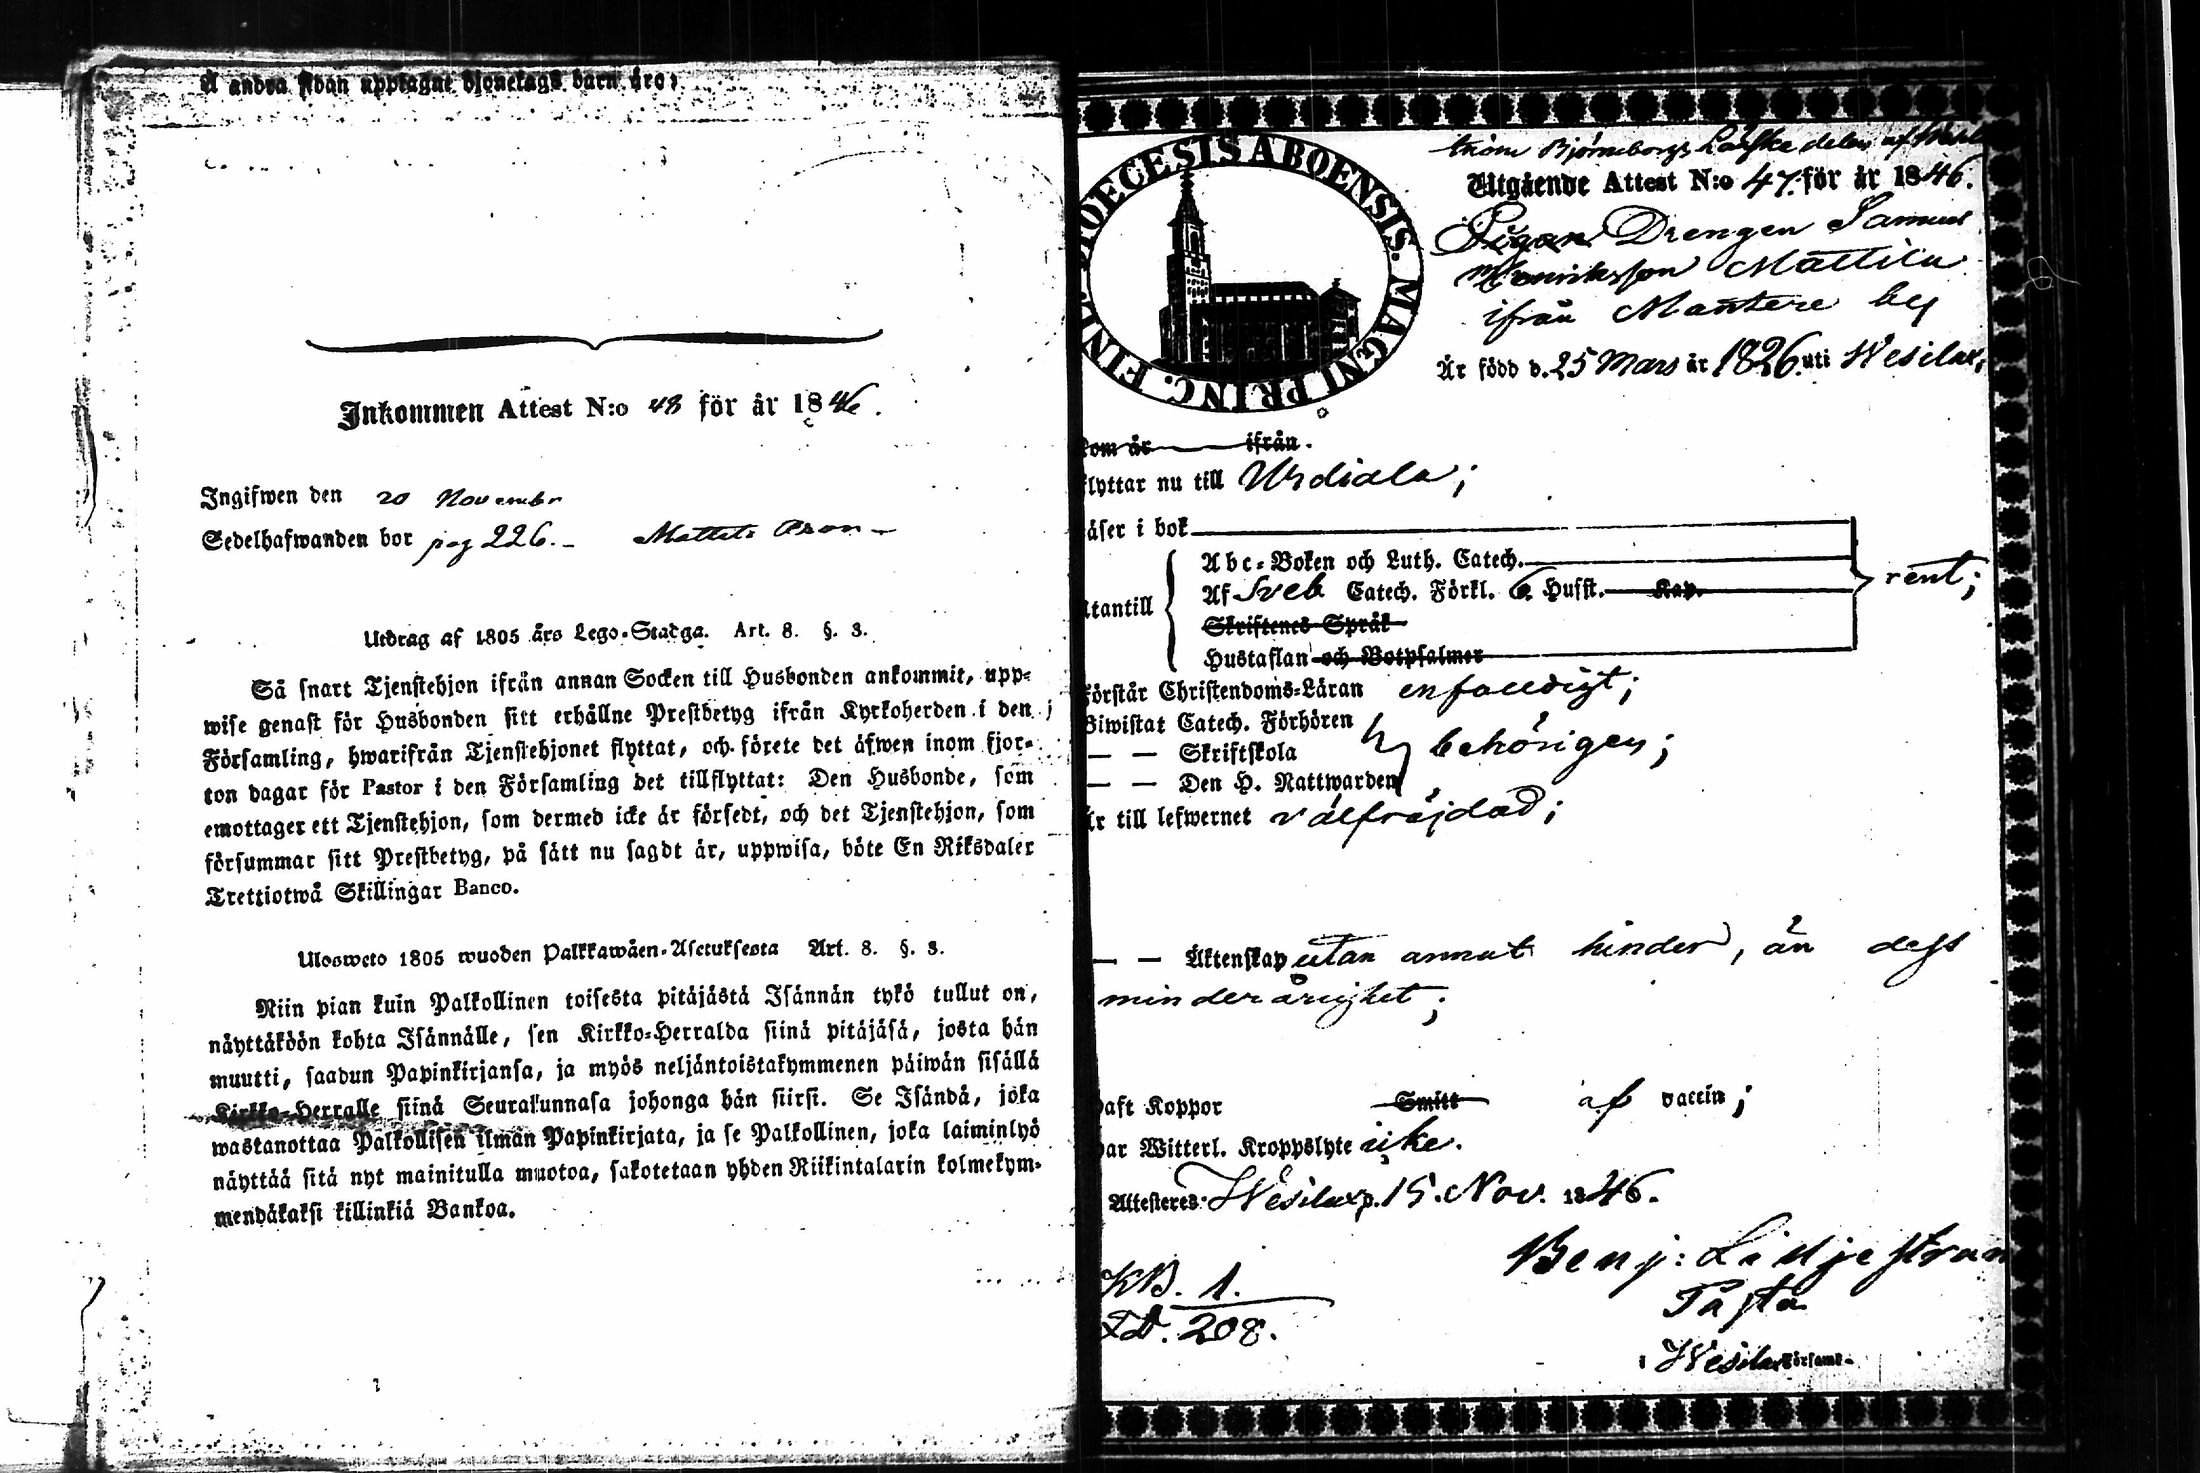 Å andra sidan upptagne tjenstehjons barn äro:
Inkommen Attest N:o 48 för år 1846.
Ingifwen den 20 Novembr
Sedelhafwanden bor pag 226.
Utdrag af 1805 års Lego-Stadga. Art. 8. §. 3.
Så snart Tjenstehjon ifrån annan Socken till Husbonden ankommit, upp-
wise genast för Husbonden sitt erhållne Prestbetyg ifrån Kyrkoherden i den
Församling, hwarifrån Tjenstehjonet flyttat, och förete det äfwen inom fjor-
ton dagar för Pastor i den Församling det tillflyttat: Den Husbonde, som
emottager ett Tjenstehjon, som dermed icke är försedt, och det Tjenstehjon, som
försummar sitt Prestbetyg, på sätt nu sagdt är, uppwisa, böte En Riksdaler
Trettiotwå Skillingar Banco.
Ulosweto 1805 wuoden Palkkawäen-Asetuksesta Art. 8. §. 3.
Niin pian kuin Palkollinen toisesta pitäjästä Isännän tykö tullut on,
näyttäköön kohta Isännälle, sen Kirkko-Herralda siinä pitäjäsä, josta hän
muutti, saadun Papinkirjansa, ja myös neljäntoistakymmenen päiwän sisällä
Kirkko-Herralle siinä Seurakunnasa johonga hän siirsi. Se Isändä, joka
wastanottaa Palkollisen ilman Papinkirjata, ja se Palkollinen, joka laiminlyö
näyttää sitä nyt mainitulla muotoa, sakotetaan yhden Riikintalarin kolmekym-
mendäkaksi killinkiä Bankoa.
DIOECESIS ABOENSIS. MAGNI PRINC. FINL.
Björneborgs
Utgående Attest N:o 47. för år 1846.
Pigan Drengen Samuel
Henriksson Mattila
ifrån Mantere by
Är född d. 25 Mars år 1826 uti Wesilax,
kom år ifrån.
flyttar nu till Urdiala;
läser i bok
Abc-Boken och Luth. Catech.
Af Sveb Catech. Förkl. 6 Husst. Kap. rent;
utantill
Skriftenes Språk
Hustaflan och Botpsalmer
förstår Christendoms-Läran enfaldigt;
Biwistat Catech. Förhören
— — Skriftskola behörigen;
— — Den H. Nattwarden
är till lefwernet välfräjdad;
— — Äktenskap utan annat hinder, än dess
minderårighet;
haft Koppor Smitt af vaccin;
har Witterl. Kroppslyte icke.
Attesteres. Wesilax p. 15. Nov. 1846.
Benj: Lidjestran
KB. 1.
208.
Past.
i Wesilax Församl.